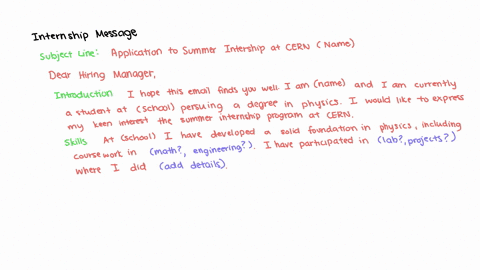 Internship Message
Subject Line: Application to Summer Intership at CERN (Name)
Dear Hiring Manager,
Introduction I hope this email finds you well. I am (name) and I am currently
a student at (school) persuing a degree in physics. I would like to express
my keen interest the summer internship program at CERN.
Skills At (school) I have developed a solid foundation in physics, including
coursework in (math?, engineering?). I have participated in (lab?, projects?)
where I did (add details).